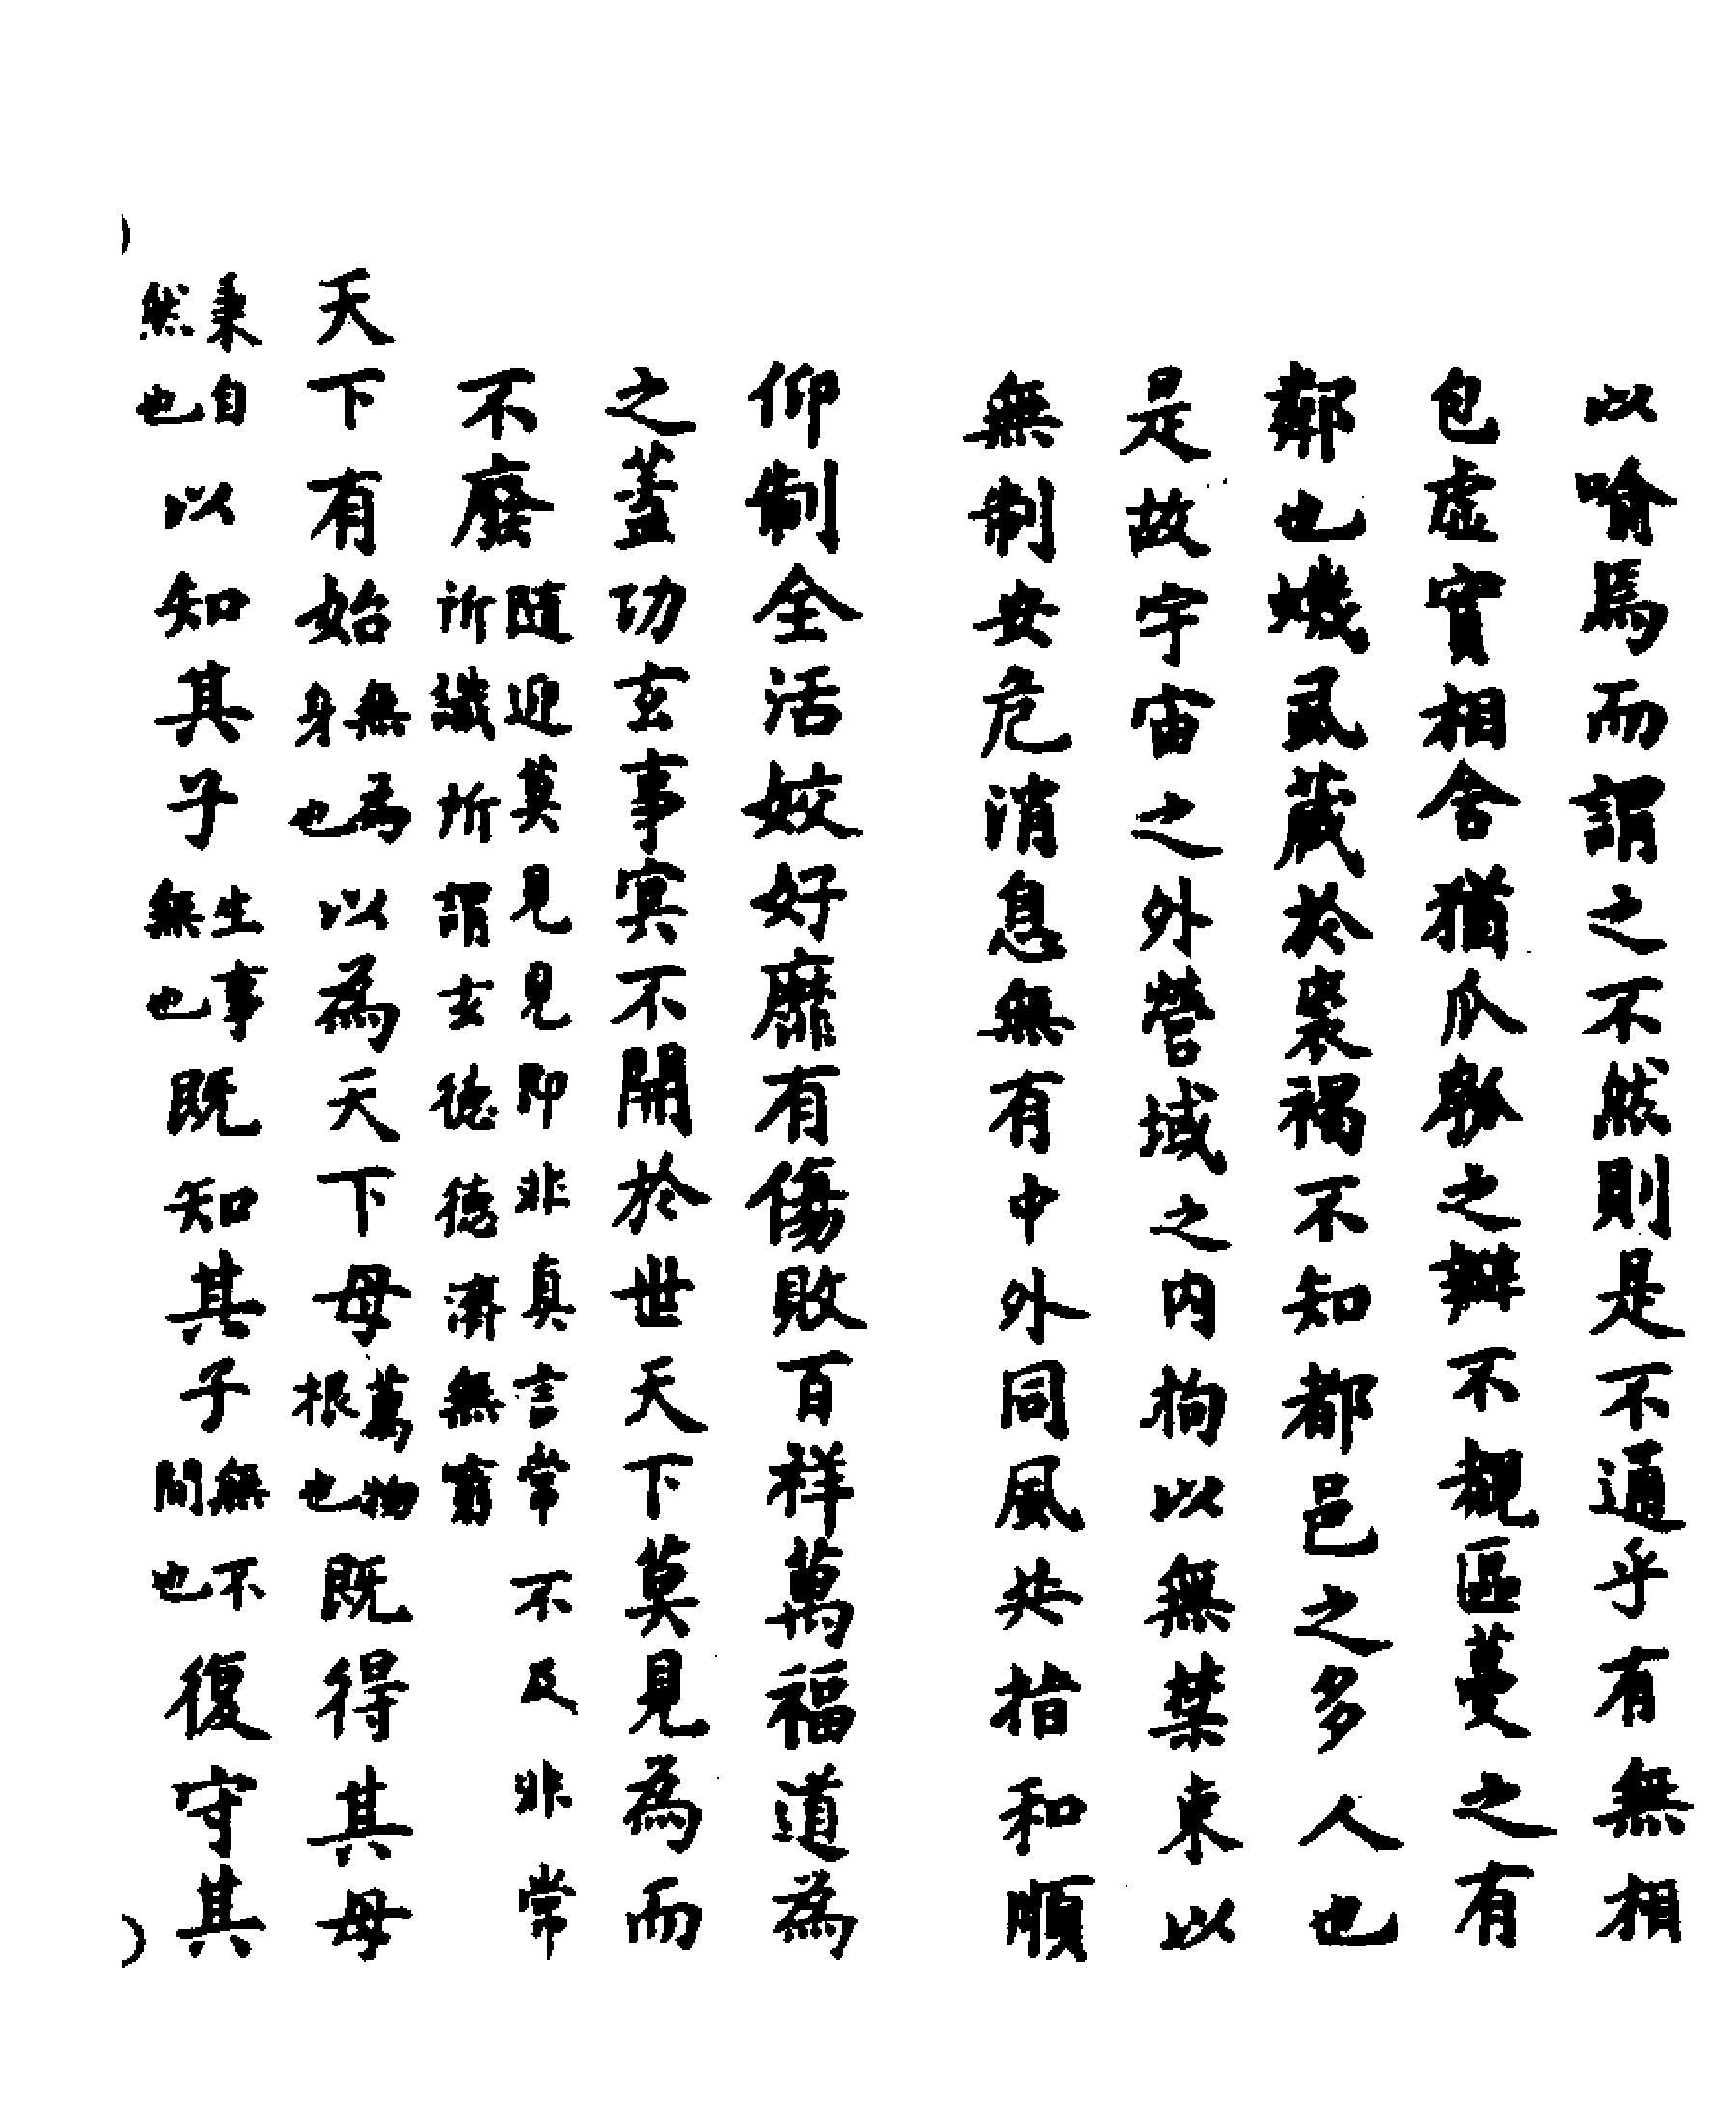 以喻焉而謂之不然則是不通乎有無相
包虛實相含猶爪瓠之辦不覩區蔓之有
鄰也蟣虱蔵於裘褐不知都邑之多人也
是故宇宙之外營域之内拘以無禁束以
無制安危消息無有中外同風共指和順
仰制全活姣好靡有傷敗百祥萬福道為
之蓋功玄事㝠不開於世天下莫見為而
不廢隨迎莫見見即非真言常不及非常所謂玄德德濟無窮
天下有始無為身也以為天下母萬物根也既得其母
秉自然也以知其子生事無也既知其子無不間也復守其